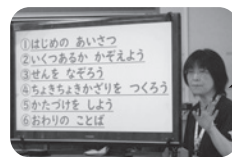 ①はじめの あいさつ
②いくつあるか かぞえよう
③せんを なぞろう
④ちょきちょきかざりを つくろう
⑤かたづけを しよう
⑥おわりの ことば